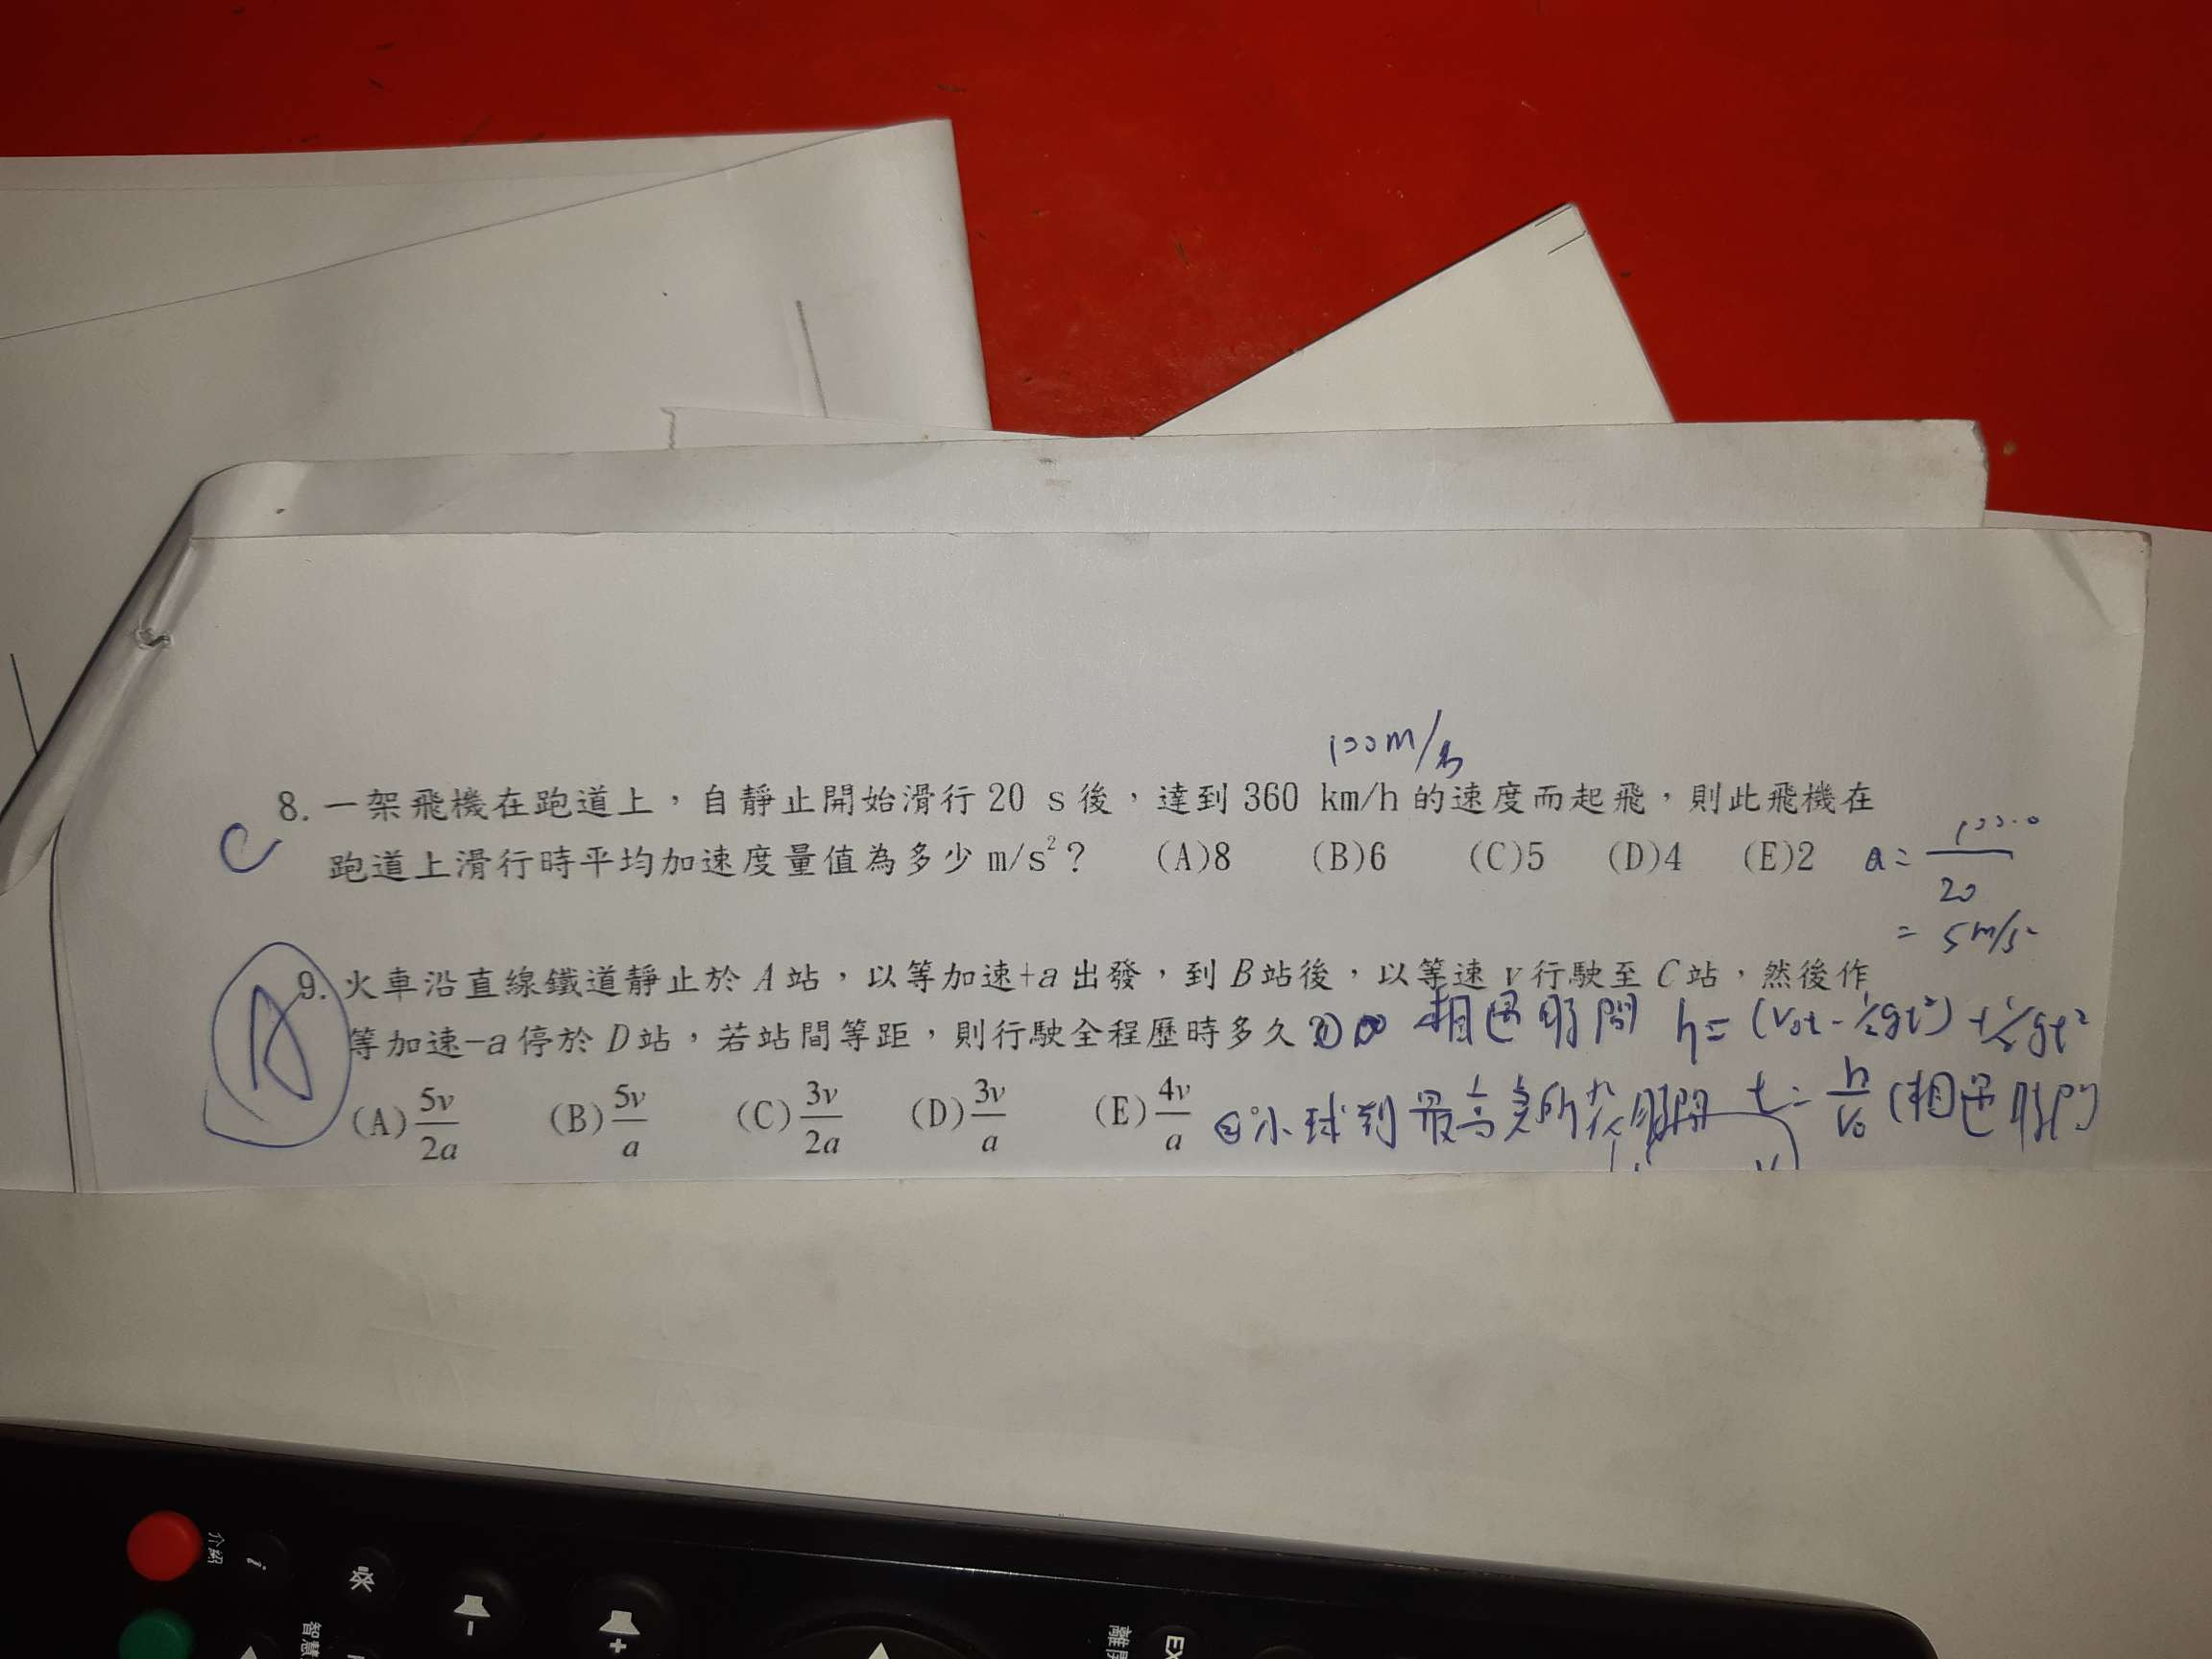 100m/s
8. 一架飛機在跑道上，自靜止開始滑行 20 s 後，達到 360 km/h 的速度而起飛，則此飛機在
C
跑道上滑行時平均加速度量值為多少 m/s²？ (A)8 (B)6 (C)5 (D)4 (E)2
a = 100-0/20
= 5m/s²
A
9. 火車沿直線鐵道靜止於 A 站，以等加速+a 出發，到 B 站後，以等速 v 行駛至 C 站，然後作
等加速-a 停於 D 站，若站間等距，則行駛全程歷時多久
① 相遇時間 h = (V₀t - 1/2gt²) + 1/2gt²
(A) 5v/2a (B) 5v/a (C) 3v/2a (D) 3v/a (E) 4v/a
②小球到最高點所花時間 t = h/V₀ (相遇時間)
介紹
i
智慧
-
+
離開
EX